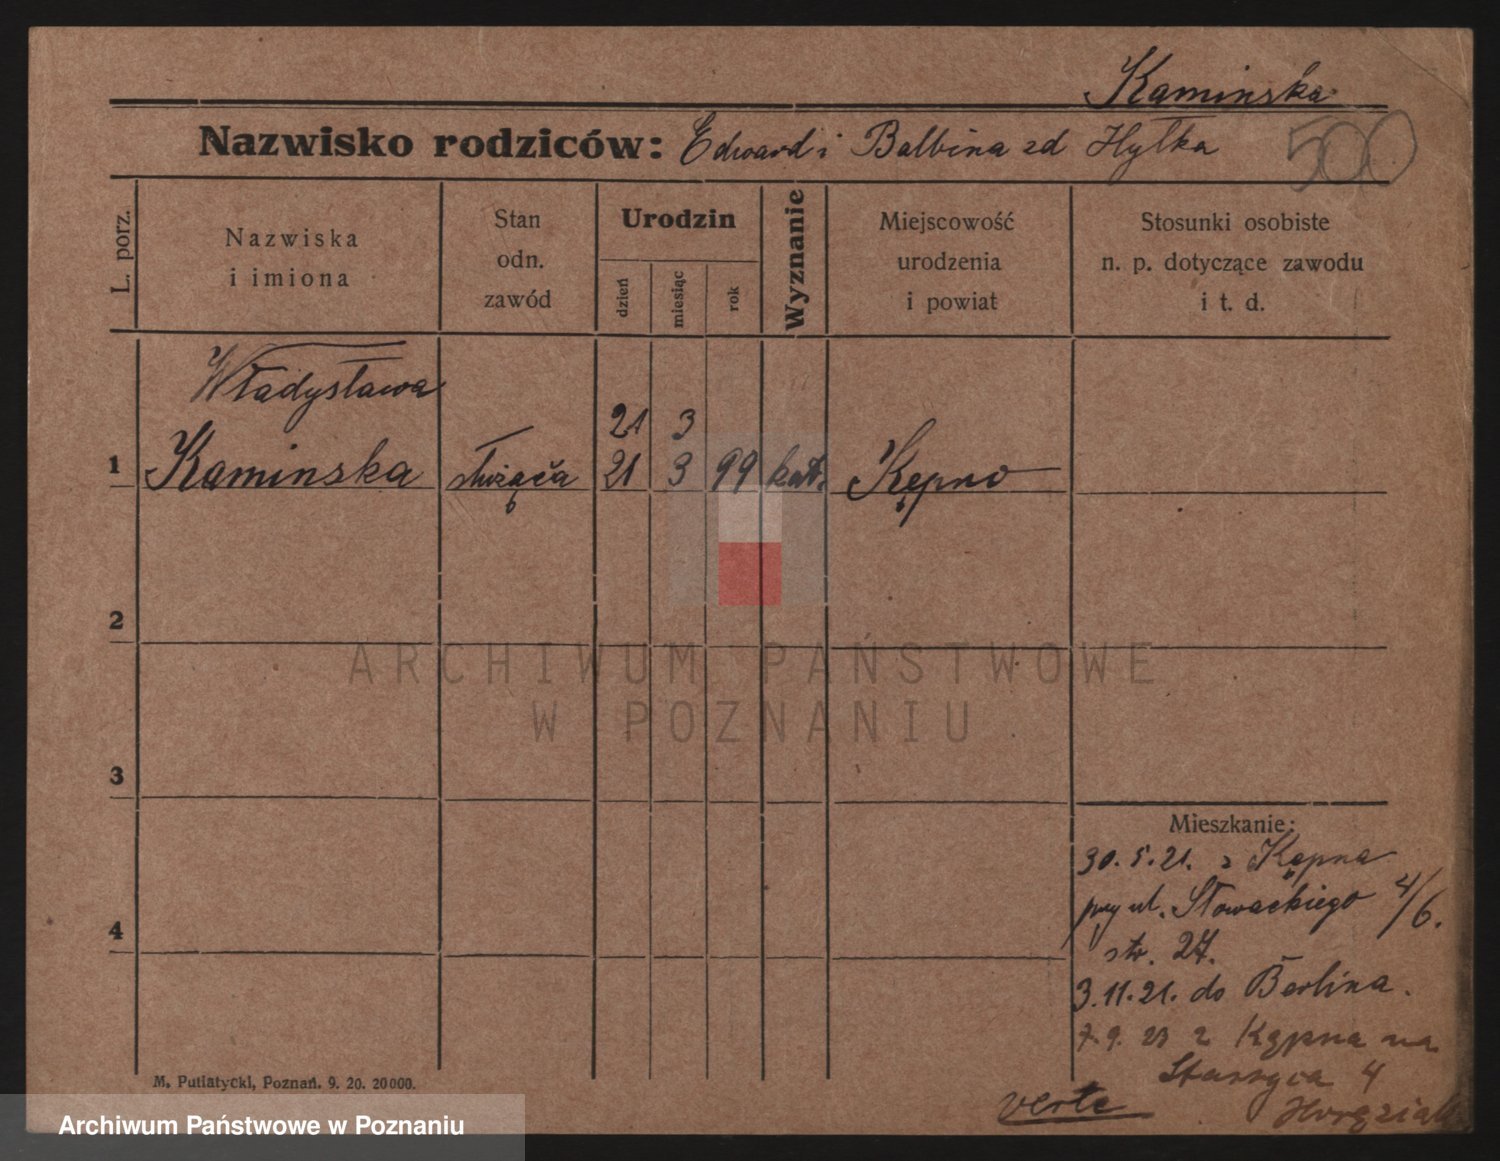 Kaminska
Nazwisko rodziców: Edward i Balbina zd Hyłka
500
L. porz.
Nazwiska
i imiona
Stan
odn.
zawód
Urodzin
dzień
miesiąc
rok
Wyznanie
Miejscowość
urodzenia
i powiat
Stosunki osobiste
n. p. dotyczące zawodu
i t. d.
Władysława
21 3
1 Kaminska służąca 21 3 99 kat. Kępno
2
ARCHIWUM PAŃSTWOWE
W POZNANIU
3
Mieszkanie:
30.5.21. z Kępna
przy ul. Słowackiego 4/6.
str. 27.
4
3.11.21. do Berlina.
7.9.23 z Kępna na
4
verte
M. Putiatycki, Poznań. 9. 20. 20000.
Archiwum Państwowe w Poznaniu